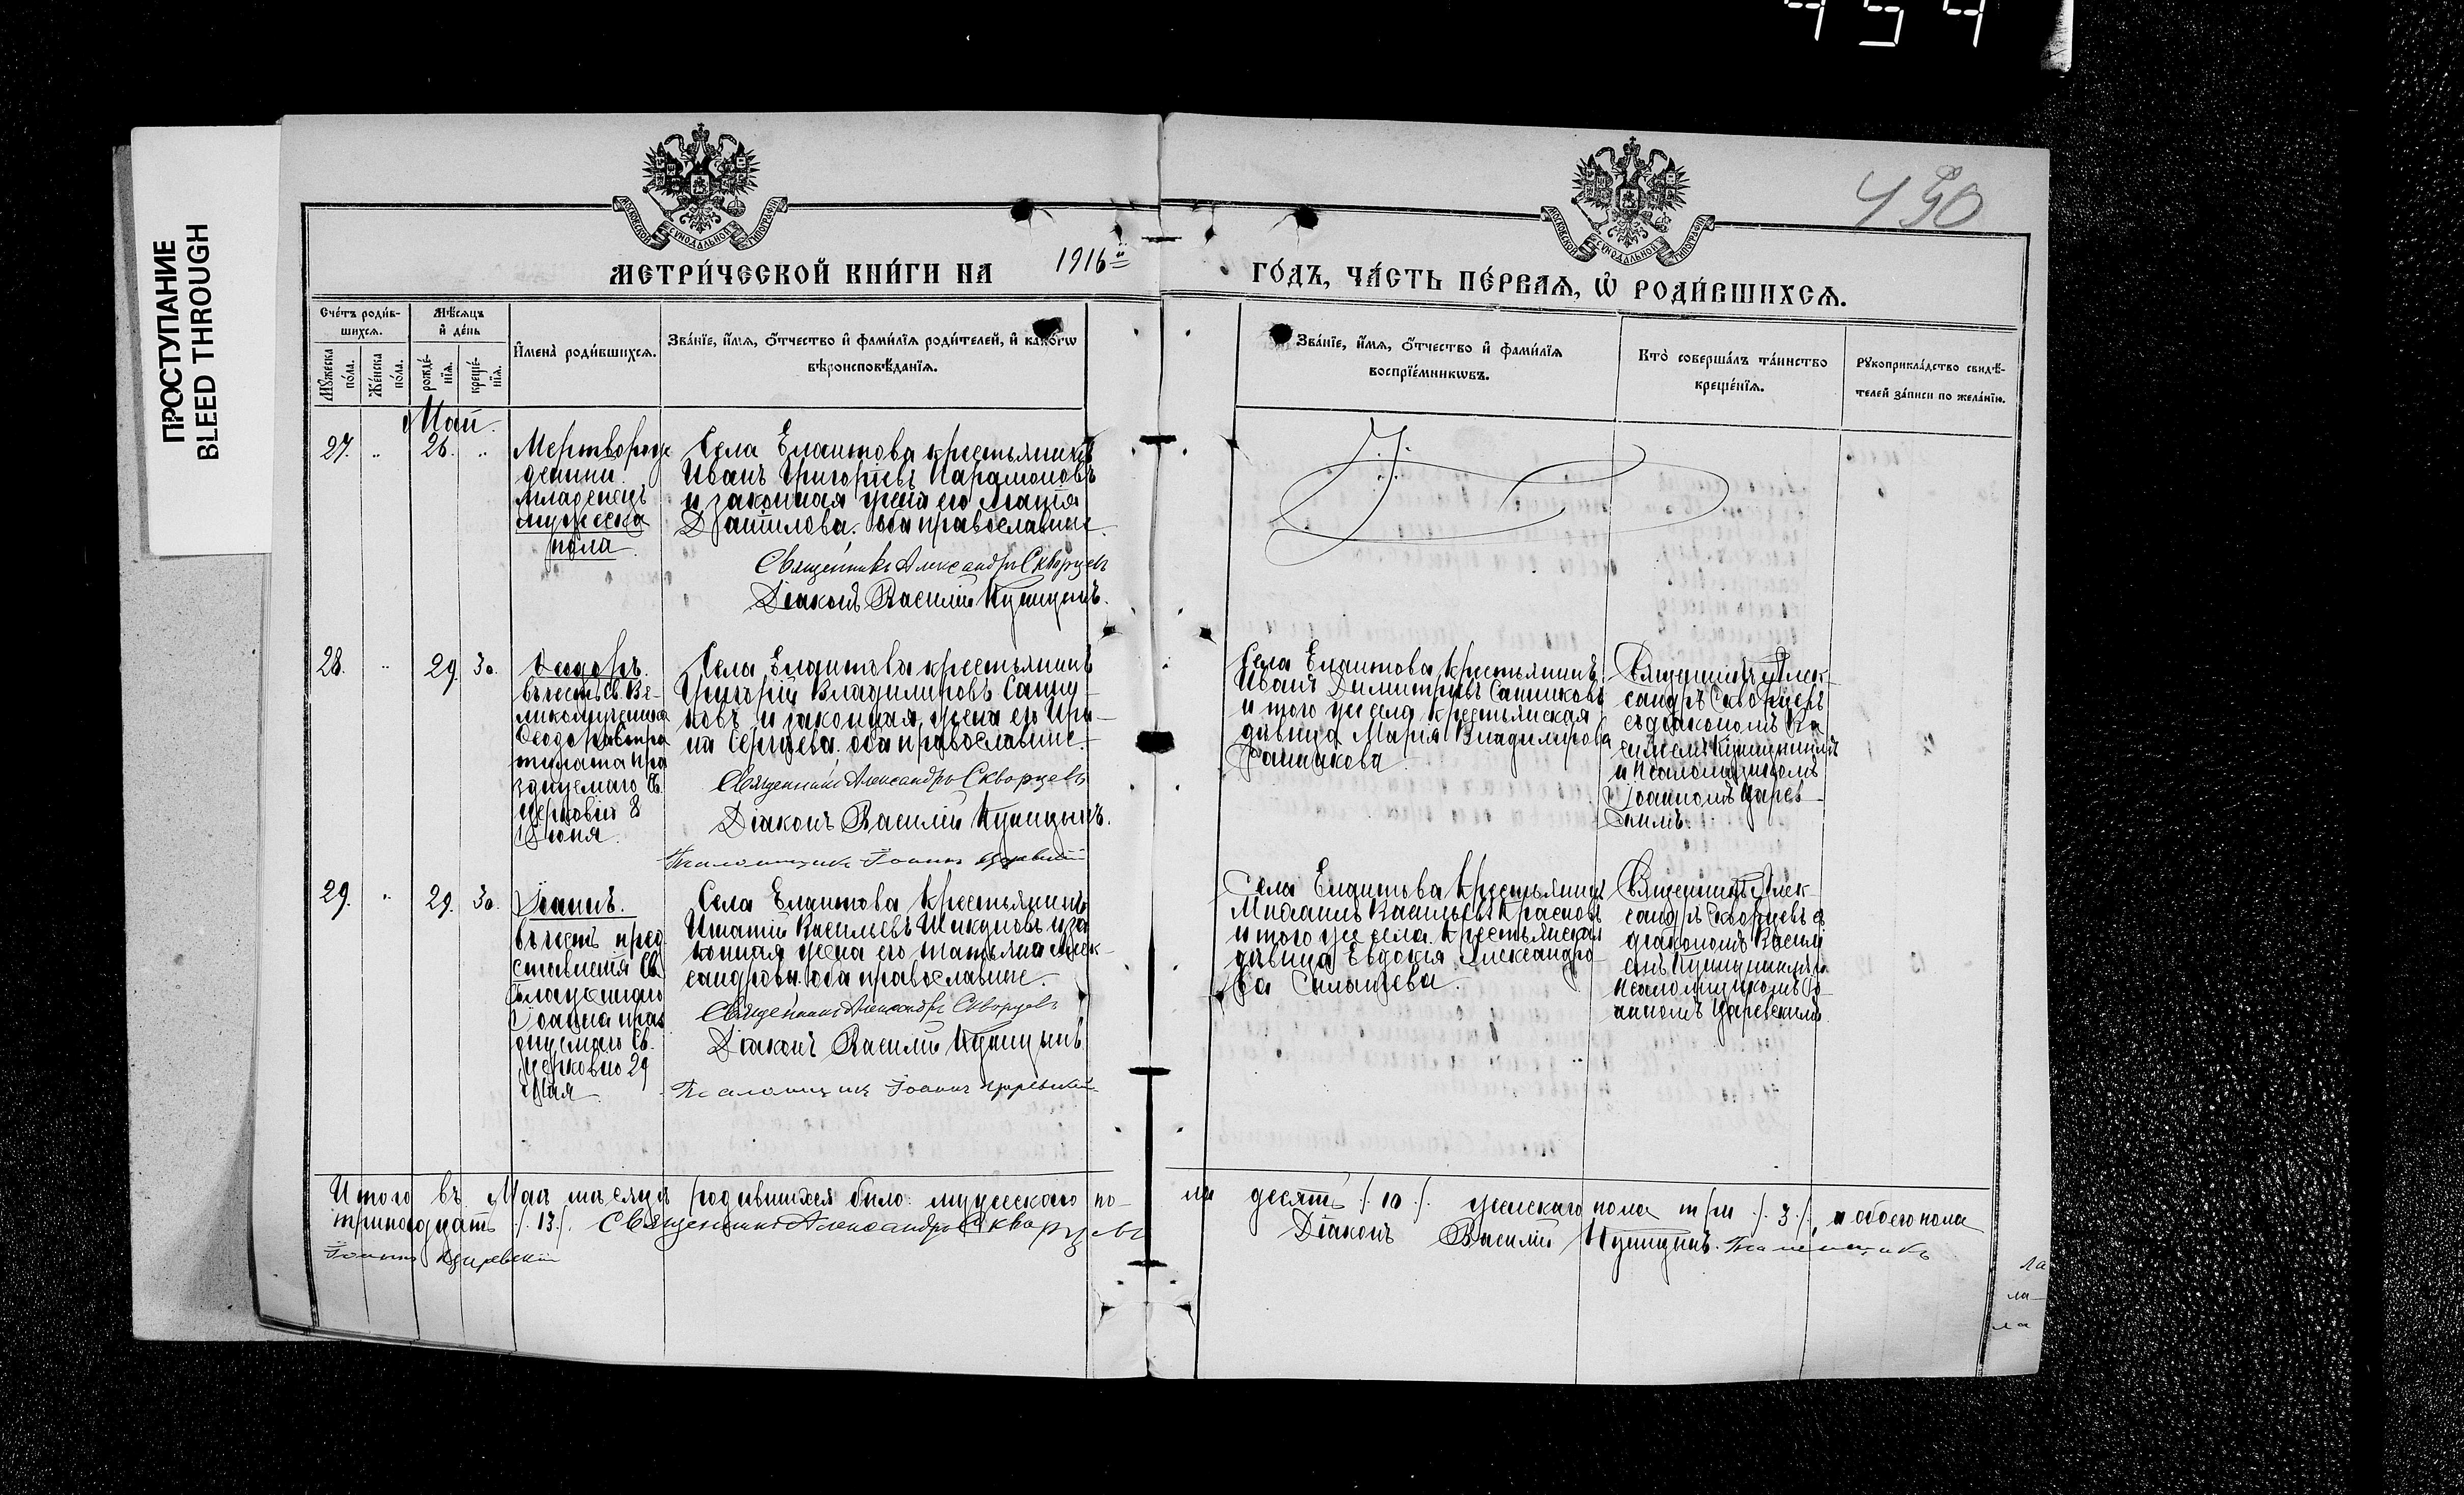 454
ПРОСТУПАНИЕ
BLEED THROUGH
МОСКОВСКОЙ СѴНОДАЛЬНОЙ ТИПОГРАФІИ
МОСКОВСКОЙ СѴНОДАЛЬНОЙ ТИПОГРАФІИ
490
МЕТРИ́ЧЕСКОЙ КНИ́ГИ НА 1916й
ГО́ДЪ, ЧА́СТЬ ПЕ́РВАЯ, Ѡ҆ РОДИ́ВШИХСЯ.
Сче́тъ роди́в-
шихся.
Мѣ́сяцъ
и҆ де́нь
Мꙋ́жеска
по́ла.
Же́нска
по́ла.
рожде́-
нїя.
креще́-
нїя.
И҆мена̀ роди́вшихся.
Зва́нїе, и҆́мя, ѻ҆́тчество и҆ фами́лїя роди́телей, и҆ како́гѡ
вѣроисповѣ́данїя.
Зва́нїе, и҆́мя, ѻ҆́тчество и҆ фами́лїя
воспрїе́мникѡвъ.
Кто̀ соверша́лъ та́инство
креще́нїя.
Рꙋкоприкла́дство свидѣ́-
телей за́писи по жела́нїю.
Май.
27. " 26. "
Мертворож
денный
младенецъ
мужеска
пола.
Села Елатова крестьянинъ
Иванъ Григорьевъ Парамоновъ
и законная жена его
Данилова. оба православные.
Священникъ Александръ Скворцевъ
Діаконъ Василій Куницынъ.
28. " 29. 30.
Ѳеодоръ.
въ честь св. Ве-
ликомученика
Ѳеодора Стра
тилата пра
зднуемаго Св.
Церковію 8
Іюня.
Села Елатова крестьянинъ
Григорій Владиміровъ Санни-
ковъ и законная жена его Ири-
на Сергѣева. оба православные.
Священникъ Александръ Скворцевъ
Діаконъ Василій Куницынъ.
Псаломщикъ Іоаннъ Царевскій
Села Елатова крестьянинъ
Иванъ Димитріевъ Санниковъ
и того же села крестьянская
дѣвица Марія Владимірова
Санникова.
Священникъ Алек-
сандръ Скворцевъ
съ діакономъ Ва
силіемъ Куницынымъ
и Псаломщикомъ
Іоанномъ Царев-
скимъ.
29. " 29. 30.
Іоаннъ.
въ честь пред-
ставленія Св.
Іоанна праз
днуемаго Св.
Церковію 29
Мая.
Села Елатова крестьянинъ
Игнатій Васильевъ Шикуновъ и за
конная жена его Татьяна Алек-
сандрова. оба православные.
Священникъ Александръ Скворцевъ
Діаконъ Василій Куницынъ
Псаломщикъ Іоаннъ Царевскій
Села Елатова крестьянинъ
Михаилъ Васильевъ Красновъ
и того же села крестьянская
дѣвица Евдокія Александро-
ва
Священникъ Алек-
сандръ Скворцевъ съ
діакономъ Васил
емъ Куницынымъ и
псаломщикомъ Іо-
анномъ Царевскимъ.
Итого въ Маѣ мѣсяцѣ родившихся было: мужескаго по-
ла десять /.10./. женскаго пола три /.3./, и обоего пола
тринадцать /.13./. Священникъ Александръ Скворцевъ
Діаконъ Василій Куницынъ. Псаломщикъ
Іоаннъ Царевскій
ла
ла
ла